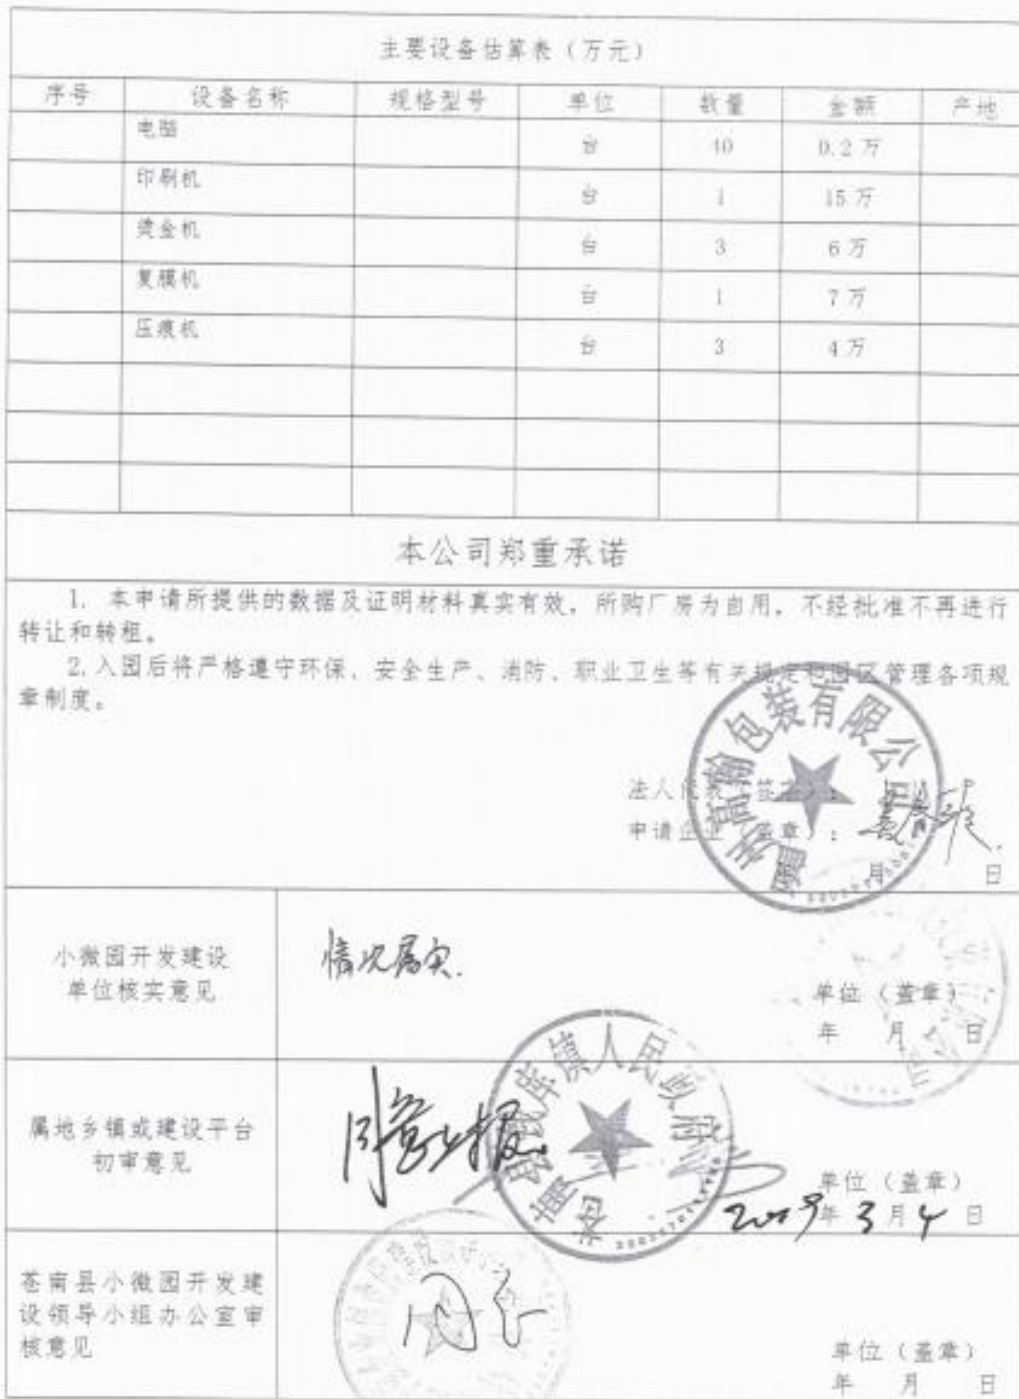 主要设备估算表（万元）
序号 设备名称 规格型号 单位 数量 金额 产地
电脑 台 40 0.2万
印刷机 台 1 15万
烫金机 台 3 6万
复膜机 台 1 7万
压痕机 台 3 4万
本公司郑重承诺
1. 本申请所提供的数据及证明材料真实有效，所购厂房为自用，不经批准不再进行
转让和转租。
2. 入园后将严格遵守环保、安全生产、消防、职业卫生等有关规定和园区管理各项规
章制度。
温州富翰包装有限公司
法人代表（签字）：
申请企业（盖章）：
月 日
小微园开发建设
单位核实意见
情况属实.
单位（盖章）
年 月 日
属地乡镇或建设平台
初审意见
同意上报
苍南县钱库镇人民政府
单位（盖章）
2019年3月4日
苍南县小微园开发建
设领导小组办公室审
核意见
同意
单位（盖章）
年 月 日